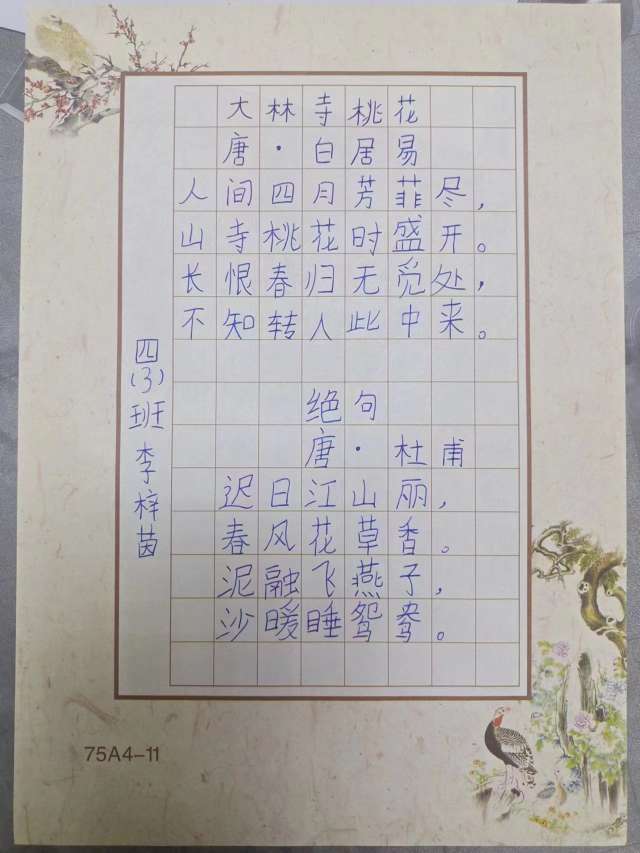 大林寺桃花
唐·白居易
人间四月芳菲尽，
山寺桃花时盛开。
长恨春归无觅处，
不知转入此中来。
绝句
唐·杜甫
迟日江山丽，
春风花草香。
泥融飞燕子，
沙暖睡鸳鸯。
四(3)班 李梓茵
75A4-11